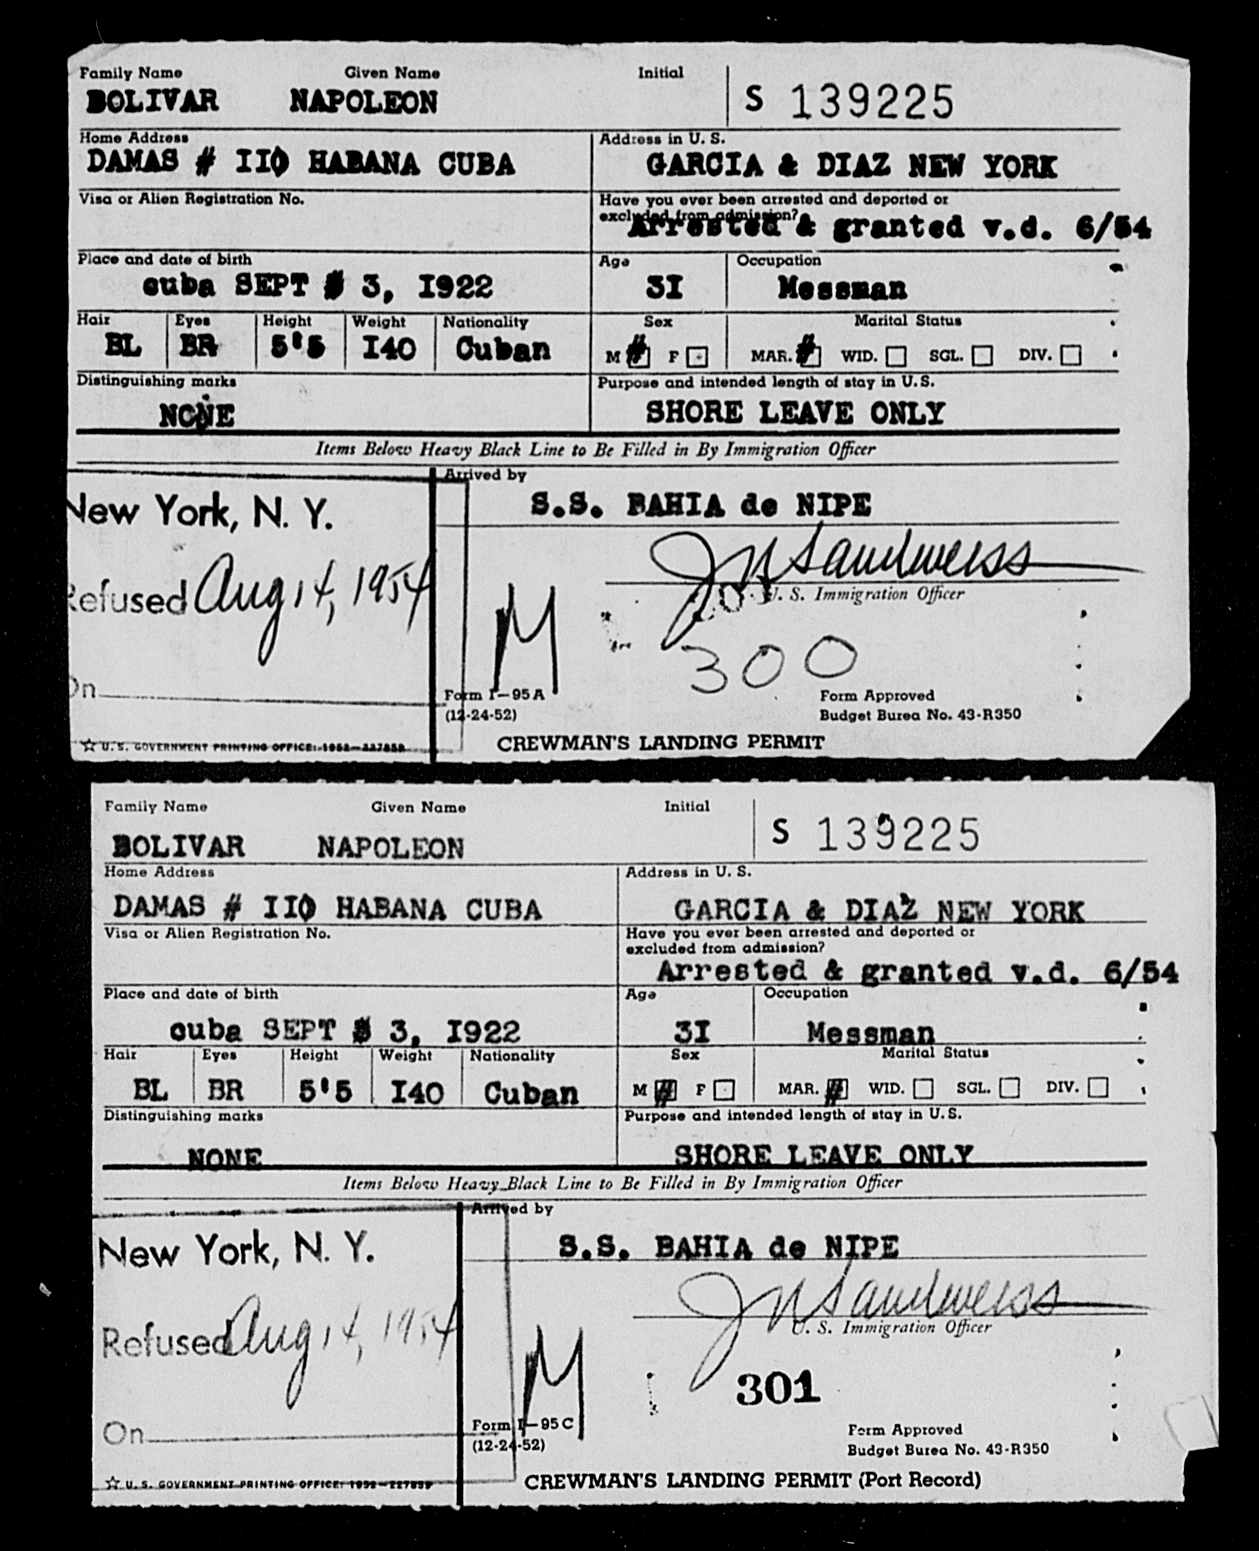 Family Name Given Name Initial
BOLIVAR NAPOLEON S 139225
Home Address Address in U. S.
DAMAS # II0 HABANA CUBA GARCIA & DIAZ NEW YORK
Visa or Alien Registration No. Have you ever been arrested and deported or
excluded from admission?
Arrested & granted v.d. 6/54
Place and date of birth Age Occupation
cuba SEPT # 3, I922 3I Messman
Hair Eyes Height Weight Nationality Sex Marital Status
BL BR 5'5 I40 Cuban M # F MAR. # WID. SGL. DIV.
Distinguishing marks Purpose and intended length of stay in U.S.
NONE SHORE LEAVE ONLY
Items Below Heavy Black Line to Be Filled in By Immigration Officer
Arrived by
New York, N. Y. S.S. BAHIA de NIPE
J N Sandweiss
Refused Aug 14, 1954 U. S. Immigration Officer
M 300
On
Form I-95 A Form Approved
(12-24-52) Budget Burea No. 43-R350
☆ U. S. GOVERNMENT PRINTING OFFICE: 1952—227839 CREWMAN'S LANDING PERMIT
Family Name Given Name Initial
BOLIVAR NAPOLEON S 139225
Home Address Address in U. S.
DAMAS # II0 HABANA CUBA GARCIA & DIAZ NEW YORK
Visa or Alien Registration No. Have you ever been arrested and deported or
excluded from admission?
Arrested & granted v.d. 6/54
Place and date of birth Age Occupation
cuba SEPT # 3, I922 3I Messman
Hair Eyes Height Weight Nationality Sex Marital Status
BL BR 5'5 I40 Cuban M # F MAR. # WID. SGL. DIV.
Distinguishing marks Purpose and intended length of stay in U.S.
NONE SHORE LEAVE ONLY
Items Below Heavy Black Line to Be Filled in By Immigration Officer
Arrived by
New York, N. Y. S.S. BAHIA de NIPE
J N Sandweiss
Refused Aug 14, 1954 U. S. Immigration Officer
M 301
On
Form I-95 C Form Approved
(12-24-52) Budget Burea No. 43-R350
☆ U. S. GOVERNMENT PRINTING OFFICE: 1952—227839 CREWMAN'S LANDING PERMIT (Port Record)